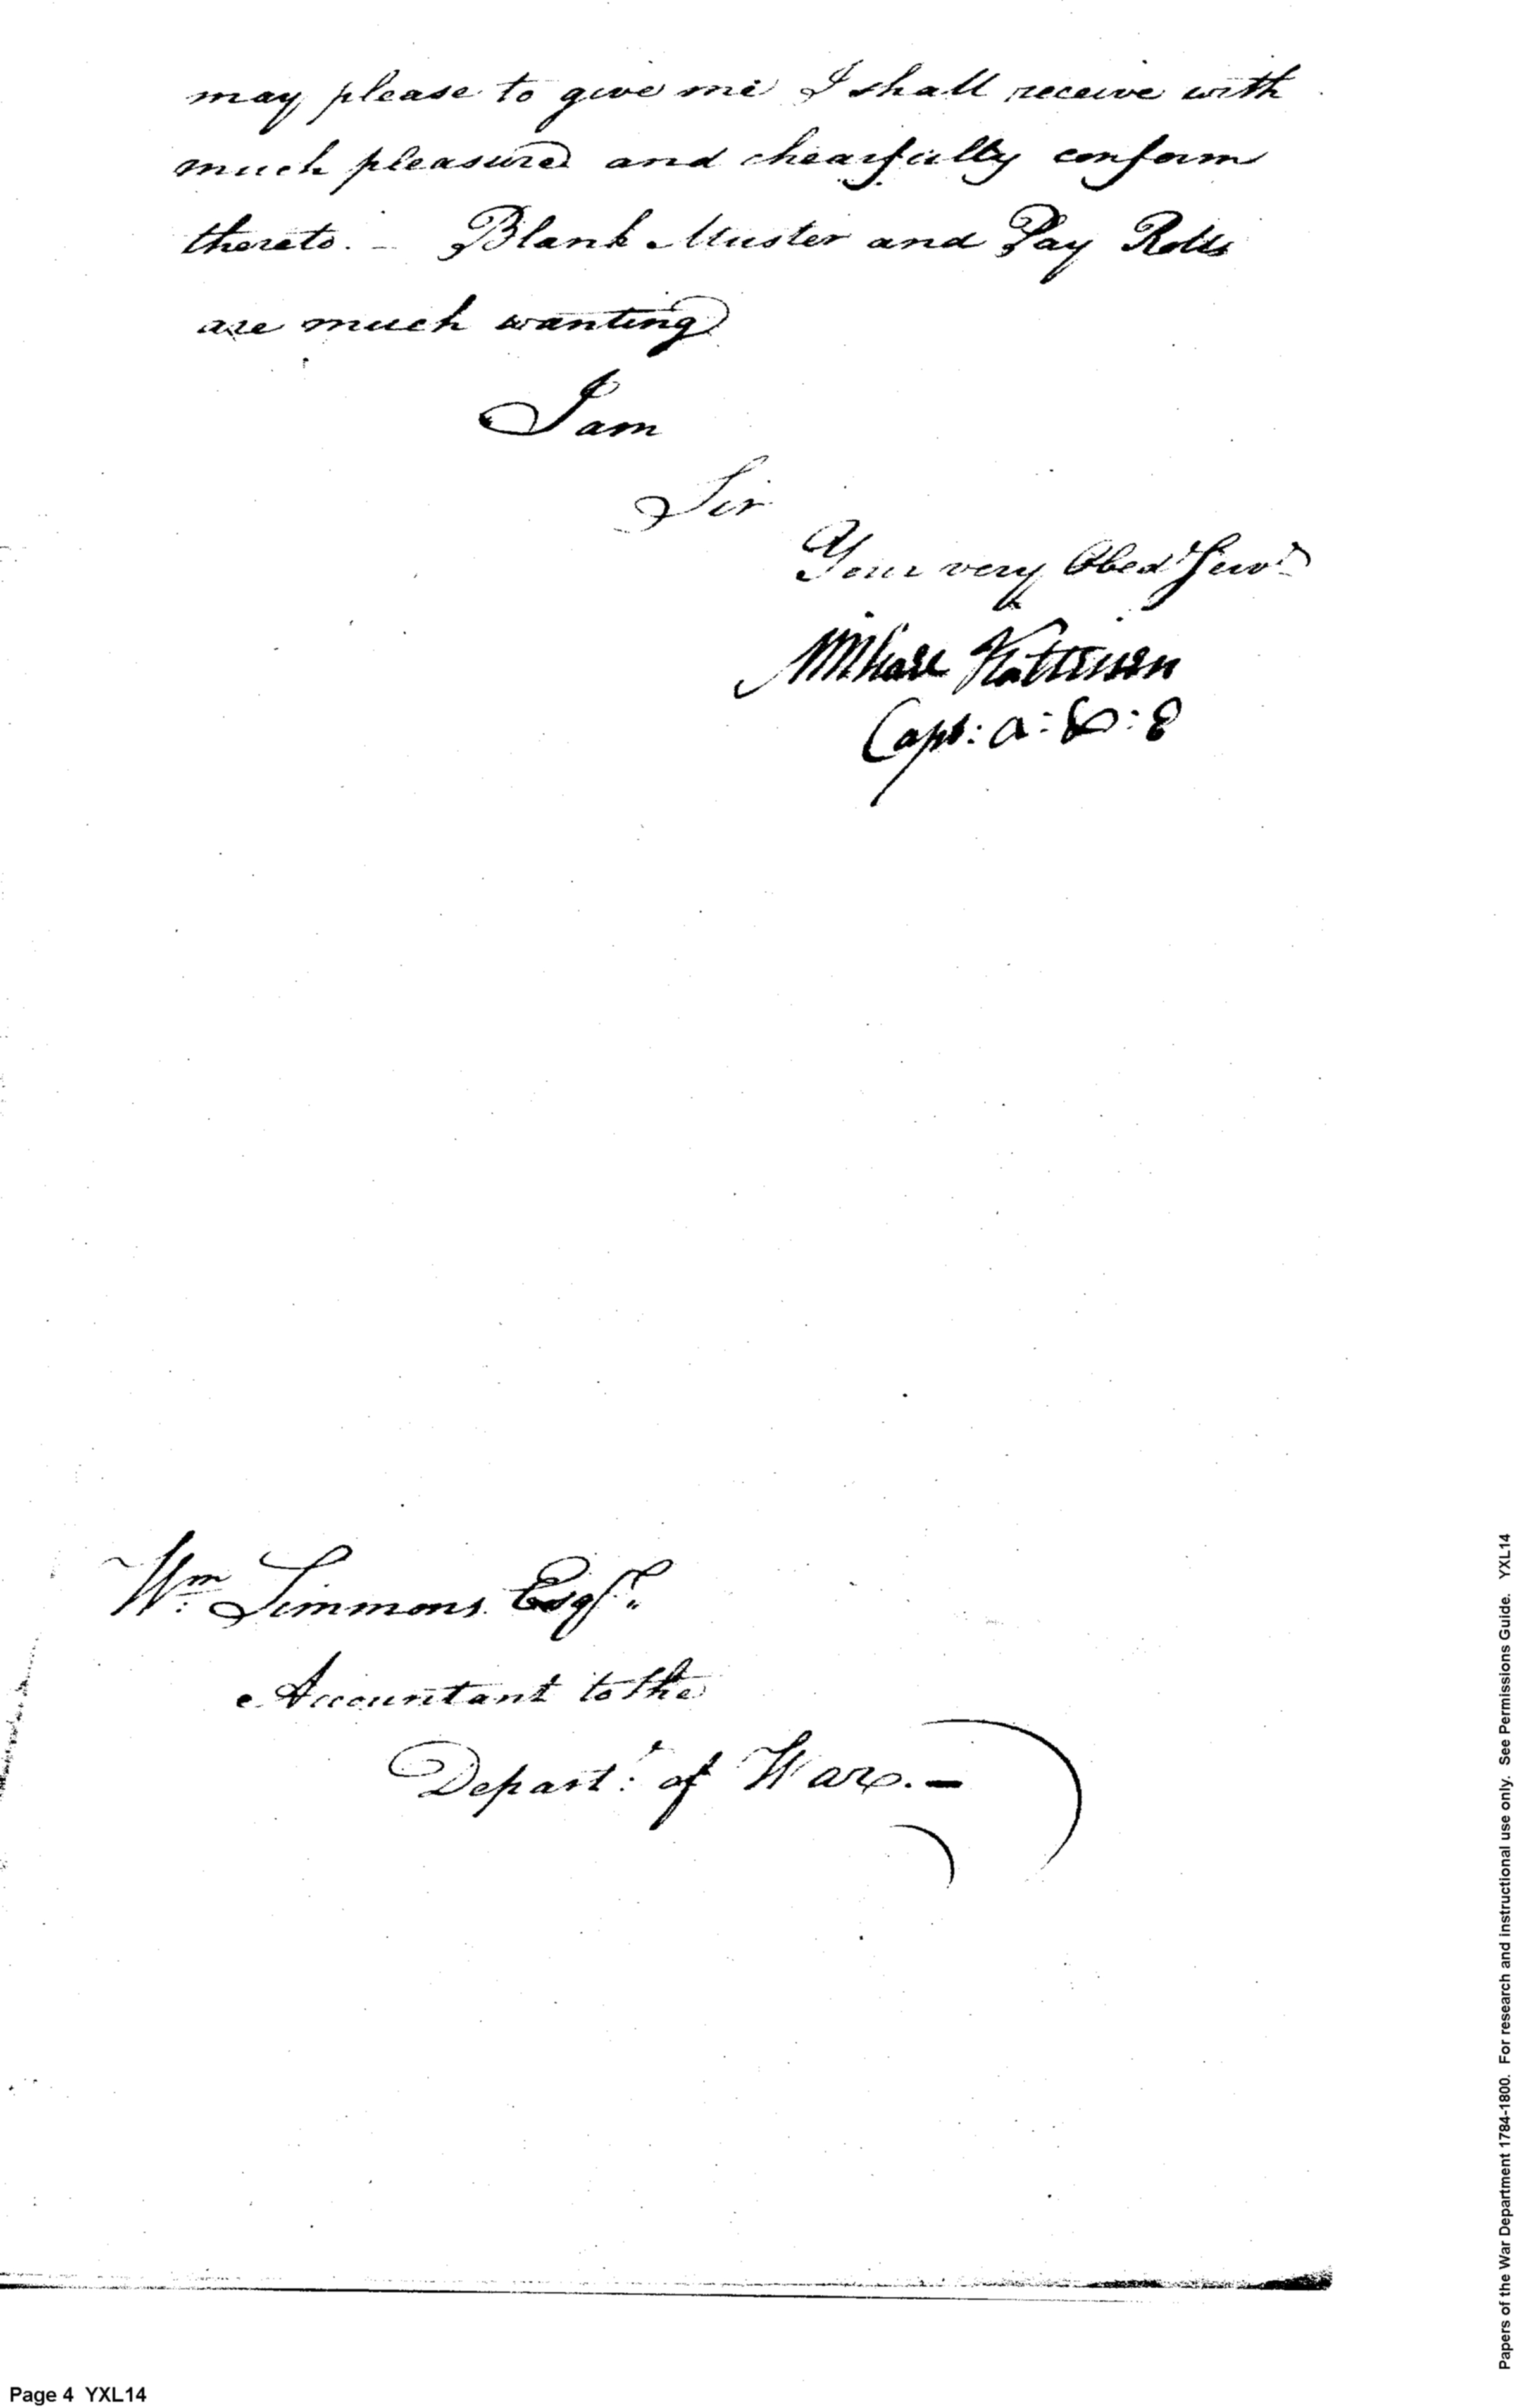 may please to give me I shall receive with
much pleasure and chearfully conform
thereto. — Blank Muster and Pay Rolls
are much wanting
I am
Sir
Your very Obedt Servt
Capt: A: & : E
Wm Simmons Esqr.
Accountant to the
Depart: of War. —
Papers of the War Department 1784-1800. For research and instructional use only. See Permissions Guide. YXL14
Page 4 YXL14